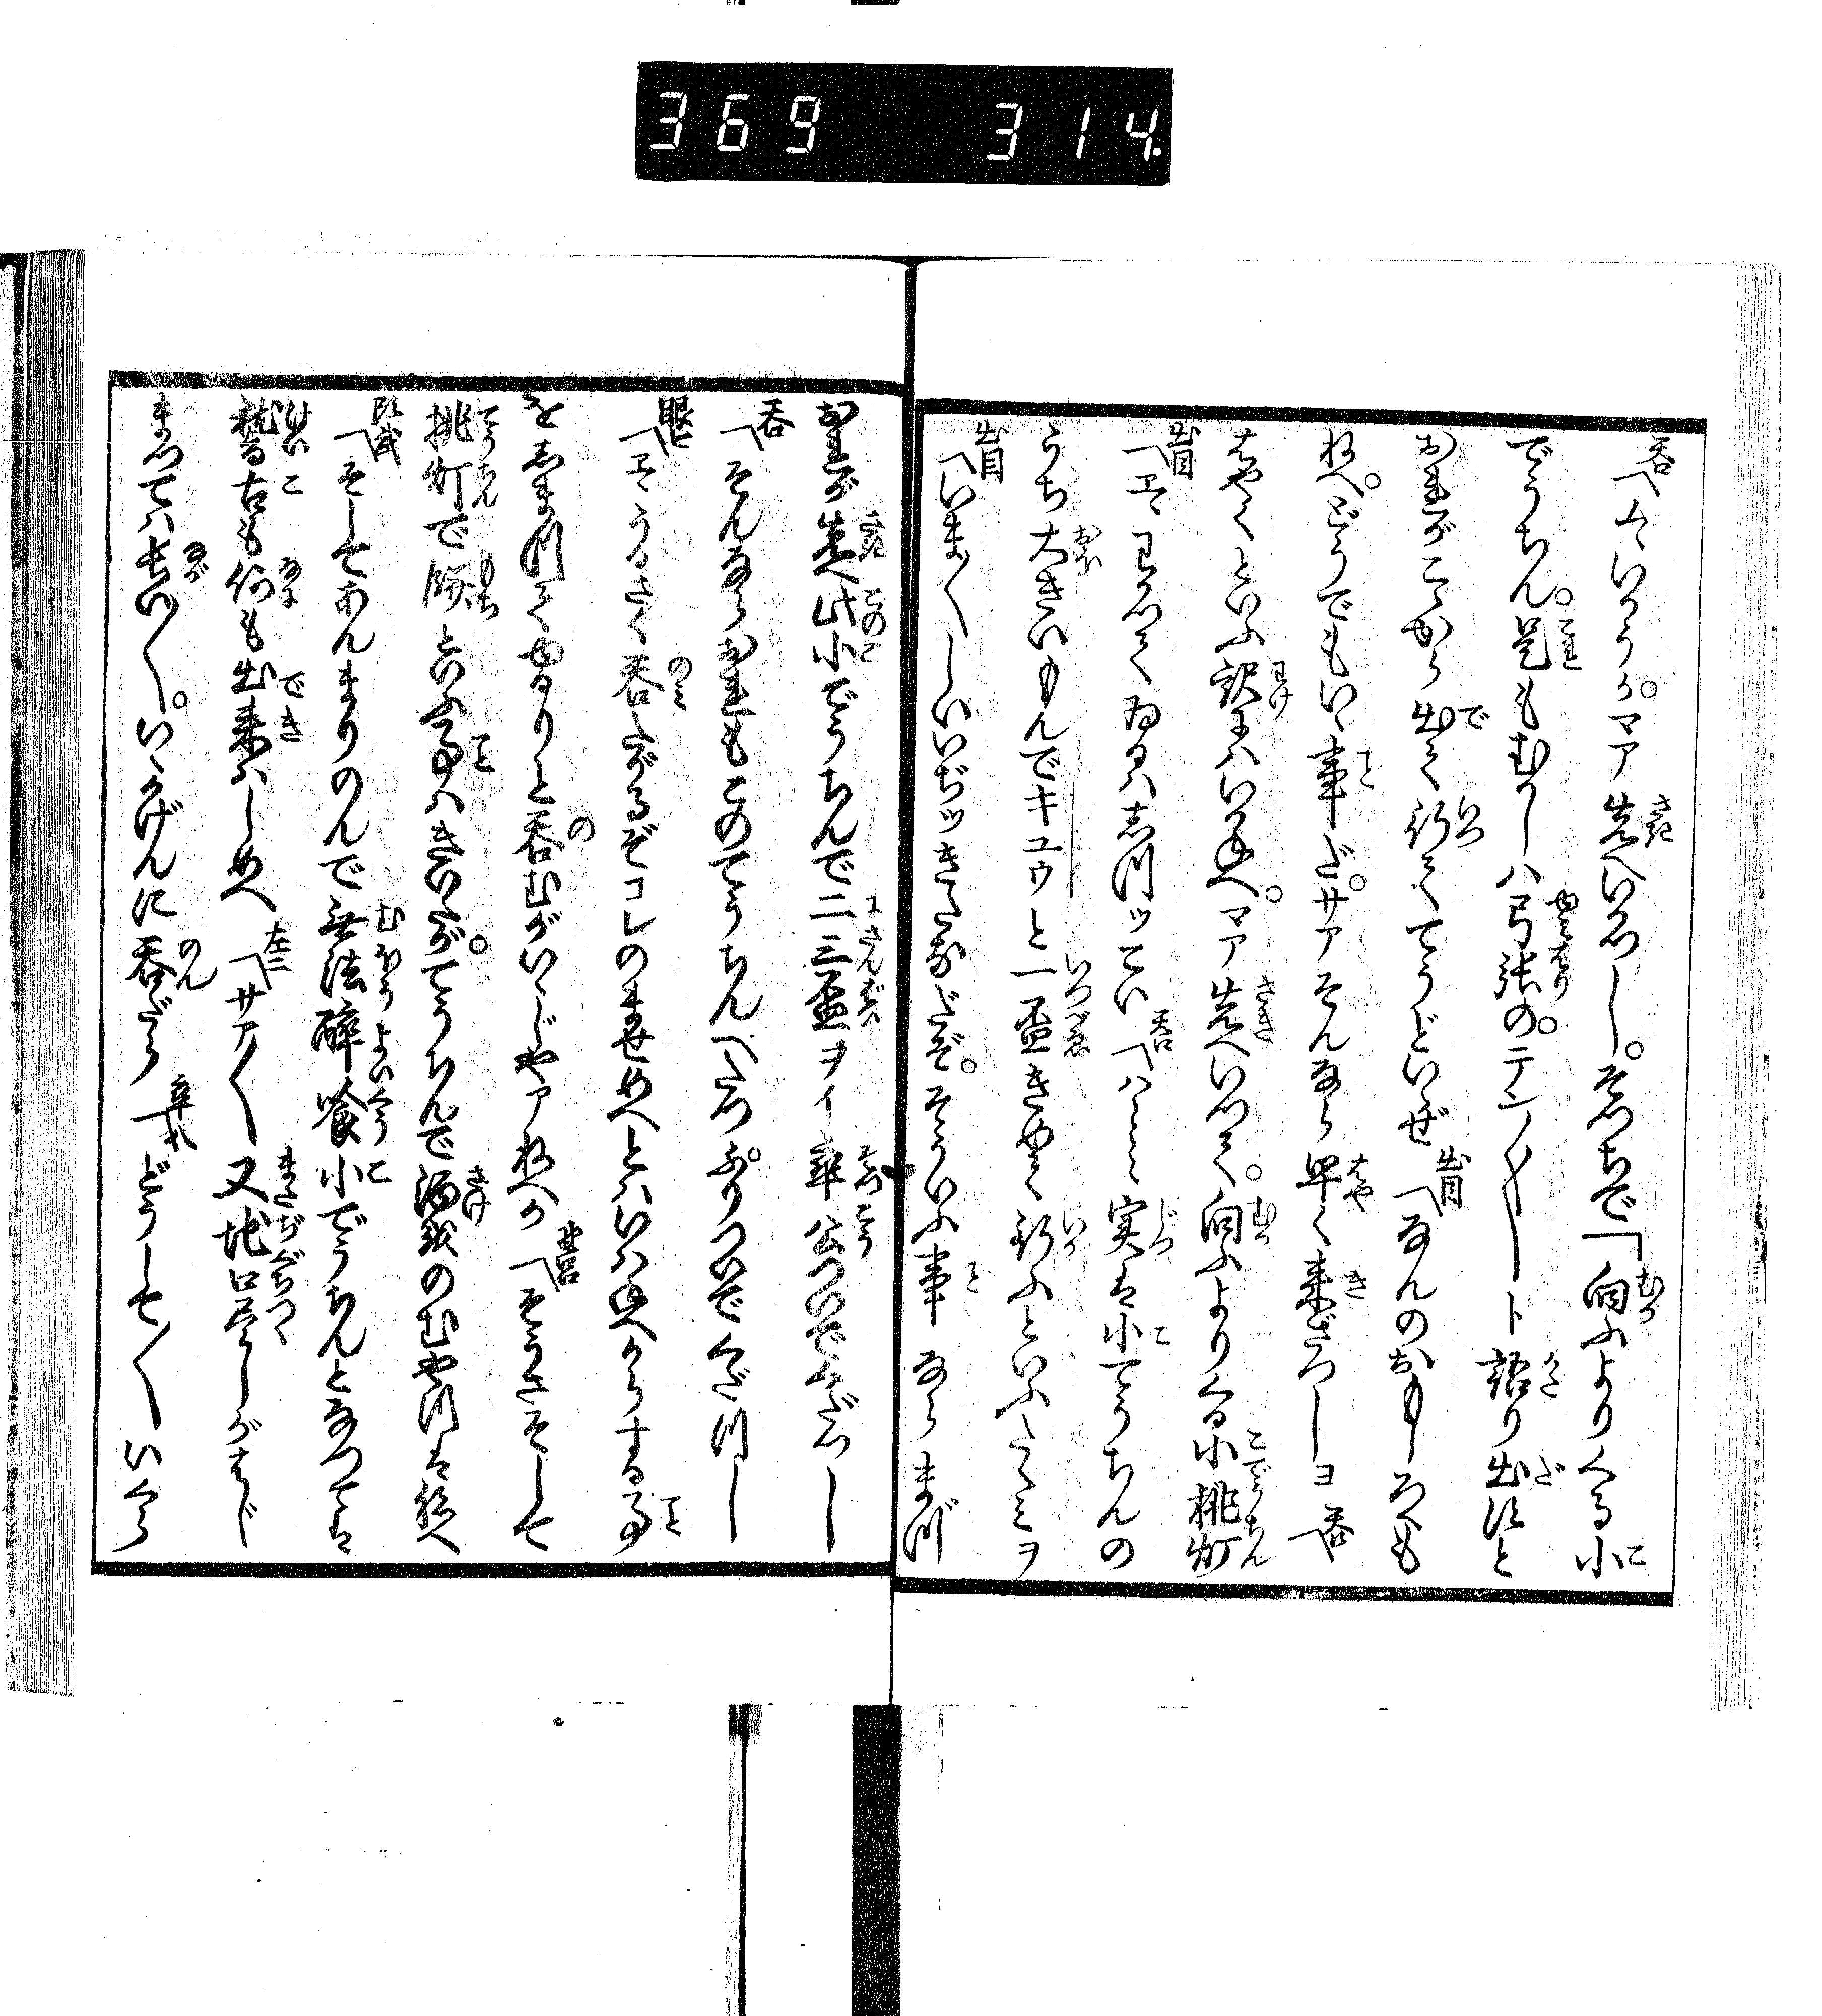 369 314.
呑〽ムヽいかうか。マア先へいかつし。そつちで「向ふよりくる小
でうちん。是もむかしハ弓張の。テン〳〵〳〵ト語り出すと
おれがこゝから出て行ててうどいゝぜ 〽なんのおもしろくも
ねへ。どうでもいゝ事だ。サアそんなら早く来さつしヨ 呑〽
はやくといふ訳にハいかねへ。マア先へいつて。向ふよりくる小挑灯
〽エヽわかつてゐるハ志川ツこい 呑〽ハヽヽヽ実は小てうちんの
うち大きいもんでキユウと一盃きめて行ふといふたくミヲ
〽いま〳〵しいいぢツきたなだぞ。そういふ事ならまづ
おれが先へ此小でうちんで二三盃ヲイ 公ついでくだつし
呑〽そんならおれもこのてうちんへたつぷりついでくだ川し
眼七〽エヽうるさく呑たがるぞコレのませめへとハいハねへからする事
をしま川てゆるりと呑むがいゝじやアねへか 〽そうさそして
挑灯で豚といふ事ハきいたが。てうちんで酒をのむやつはねへ
〽そしてあんまりのんで無法酔喰小でうちんとなつては
稽古も何も出来ハしめへ 左二〽サア〳〵又地口尽しがはじ
まつてハ長い〳〵。いゝかげんに呑だら 〽どうして〳〵いくら